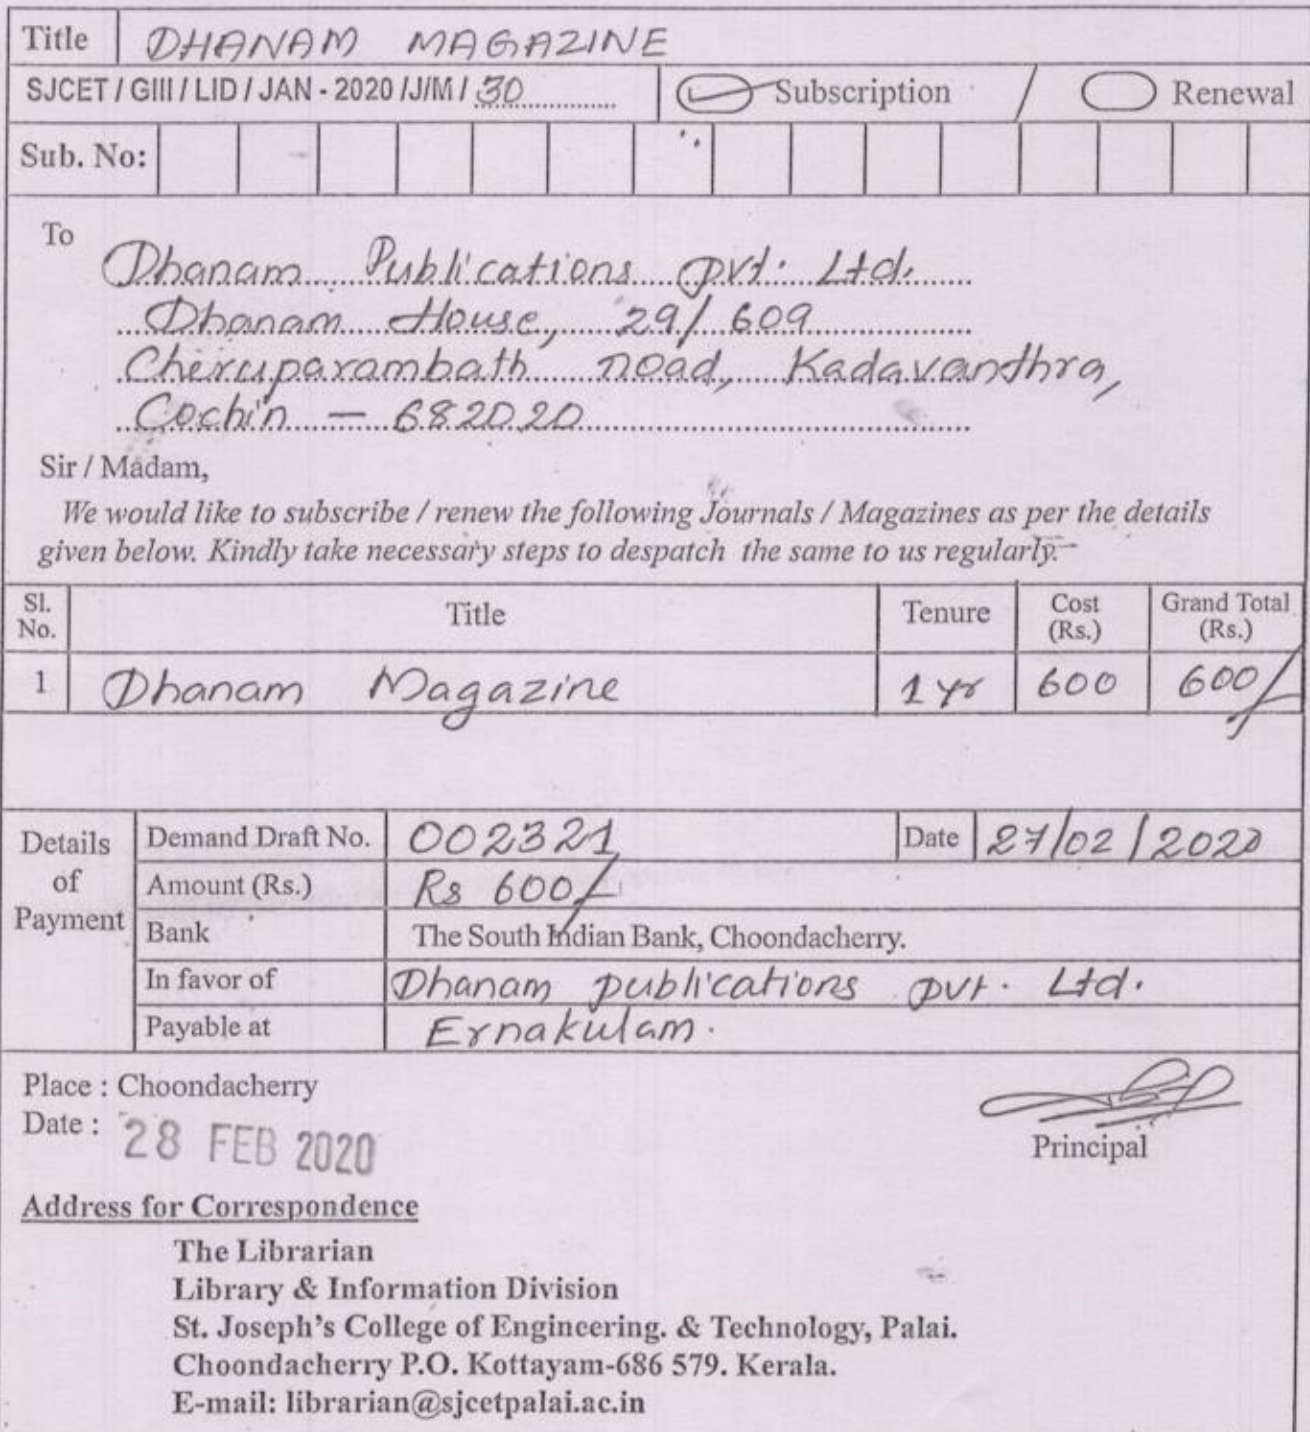 Title DHANAM MAGAZINE
SJCET / GIII / LID / JAN - 2020 /J/M / 30 Subscription / Renewal
Sub. No:
To
Dhanam Publications pvt. Ltd.
Dhanam House, 29/609
Cheruparambath road, Kadavanthra,
Cochin – 682020
Sir / Madam,
We would like to subscribe / renew the following Journals / Magazines as per the details
given below. Kindly take necessary steps to despatch the same to us regularly.
Sl. No. Title Tenure Cost (Rs.) Grand Total (Rs.)
1 Dhanam Magazine 1 yr 600 600/-
Details of Payment
Demand Draft No. 002321 Date 27/02/2020
Amount (Rs.) Rs 600/-
Bank The South Indian Bank, Choondacherry.
In favor of Dhanam publications pvt. Ltd.
Payable at Ernakulam.
Place : Choondacherry
Date : 28 FEB 2020
Principal
Address for Correspondence
The Librarian
Library & Information Division
St. Joseph's College of Engineering. & Technology, Palai.
Choondacherry P.O. Kottayam-686 579. Kerala.
E-mail: librarian@sjcetpalai.ac.in